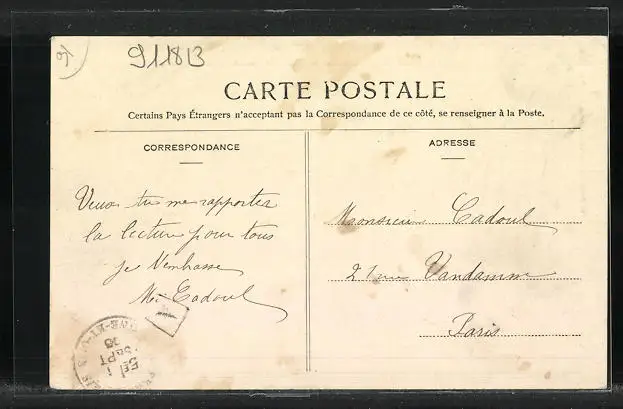 91
911813
CARTE POSTALE
Certains Pays Étrangers n'acceptant pas la Correspondance de ce côté, se renseigner à la Poste.
CORRESPONDANCE
tu me rapporter
la lecture pour tous
je t'embrasse
Cadoul
SEPT
ADRESSE
Monsieur Cadoul
21 rue Vandamme
Paris